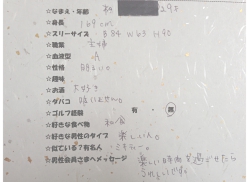 ☆なまえ・年齢 和 29才
☆身長 169cm
☆スリーサイズ B84 W63 H90
☆職業 主婦
☆血液型 A
☆性格 明るい。
☆趣味
☆お酒 大好き
☆タバコ 吸いません。
☆ゴルフ経験 有 黒
☆好きな食べ物 和食
☆好きな男性のタイプ 楽しい人。
☆似ている?有名人
☆男性会員さまへメッセージ 楽しい時間を過ごせたら
うれしいです。